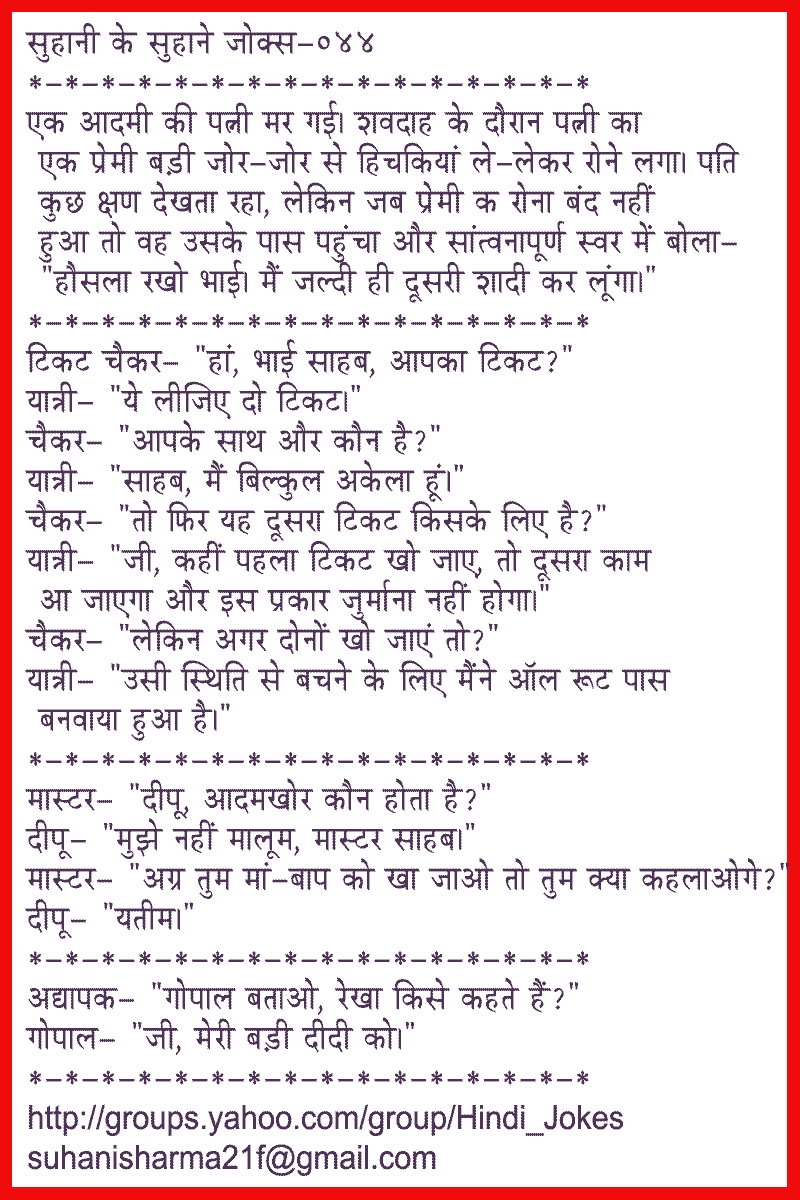 सुहानी के सुहाने जोक्स-०४४
*-*-*-*-*-*-*-*-*-*-*-*-*-*-*-*
एक आदमी की पत्नी मर गई। शवदाह के दौरान पत्नी का
एक प्रेमी बड़ी जोर-जोर से हिचकियां ले-लेकर रोने लगा। पति
कुछ क्षण देखता रहा, लेकिन जब प्रेमी क रोना बंद नहीं
हुआ तो वह उसके पास पहुंचा और सांत्वनापूर्ण स्वर में बोला-
"हौसला रखो भाई। मैं जल्दी ही दूसरी शादी कर लूंगा।"
*-*-*-*-*-*-*-*-*-*-*-*-*-*-*-*
टिकट चैकर- "हां, भाई साहब, आपका टिकट?"
यात्री- "ये लीजिए दो टिकट।"
चैकर- "आपके साथ और कौन है?"
यात्री- "साहब, मैं बिल्कुल अकेला हूं।"
चैकर- "तो फिर यह दूसरा टिकट किसके लिए है?"
यात्री- "जी, कहीं पहला टिकट खो जाए, तो दूसरा काम
आ जाएगा और इस प्रकार जुर्माना नहीं होगा।"
चैकर- "लेकिन अगर दोनों खो जाएं तो?"
यात्री- "उसी स्थिति से बचने के लिए मैंने ऑल रूट पास
बनवाया हुआ है।"
*-*-*-*-*-*-*-*-*-*-*-*-*-*-*-*
मास्टर- "दीपू, आदमखोर कौन होता है?"
दीपू- "मुझे नहीं मालूम, मास्टर साहब।"
मास्टर- "अग्र तुम मां-बाप को खा जाओ तो तुम क्या कहलाओगे?"
दीपू- "यतीम।"
*-*-*-*-*-*-*-*-*-*-*-*-*-*-*-*
अद्यापक- "गोपाल बताओ, रेखा किसे कहते हैं?"
गोपाल- "जी, मेरी बड़ी दीदी को।"
*-*-*-*-*-*-*-*-*-*-*-*-*-*-*-*
http://groups.yahoo.com/group/Hindi_Jokes
suhanisharma21f@gmail.com